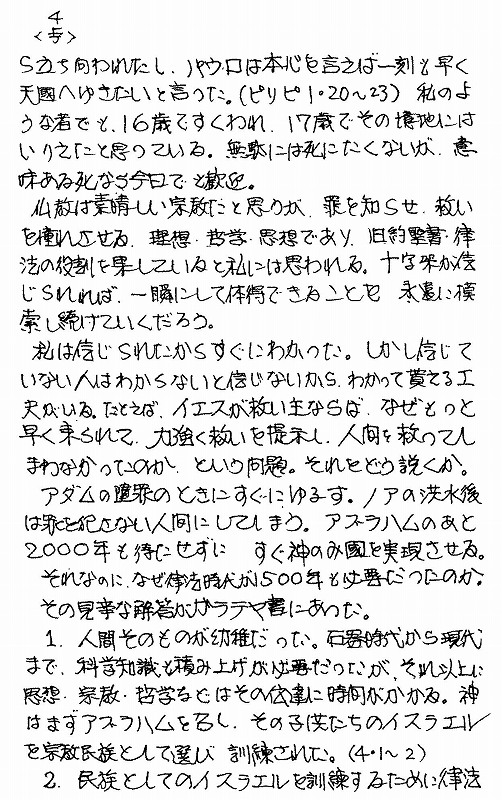 4
<号>
ら立ち向われたし、パウロは本心を言えば一刻も早く
天國へゆきたいと言った。(ピリピ1・20〜23) 私のよ
うな者でも、16歳ですくわれ、17歳でその境地には
いりえたと思っている。無駄には死にたくないが、意
味ある死なら今日でも歓迎。
仏教は素晴しい宗教だと思うが、罪を知らせ、救い
を憧れさせる、理想・哲学・思想であり、旧約聖書・律
法の役割を果していると私には思われる。十字架が信
じられれば、一瞬にして体得できることを 永遠に模
索し続けていくだろう。
私は信じられたからすぐにわかった。しかし信じて
いない人はわからないと信じないから、わかって貰える工
夫がいる。たとえば、イエスが救い主ならば、なぜもっと
早く来られて、力強く救いを提示し、人間を救ってし
まわなかったのか、という問題。それをどう説くか。
アダムの堕罪のときにすぐにゆるす。ノアの洪水後
は罪を犯さない人間にしてしまう。アブラハムのあと
2000年も待たせずに すぐ神のみ國を実現させる。
それなのに、なぜ律法時代が1500年も必要だったのか。
その見事な解答がガラテヤ書にあった。
1. 人間そのものが幼稚だった。石器時代から現代
まで、科学知識も積み上げが必要だったが、それ以上に
思想・宗教・哲学などはその伝達に時間がかかる。神
はまずアブラハムを召し、その子供たちのイスラエル
を宗教民族として選び 訓練された。(4・1〜2)
2. 民族としてのイスラエルを訓練するために律法